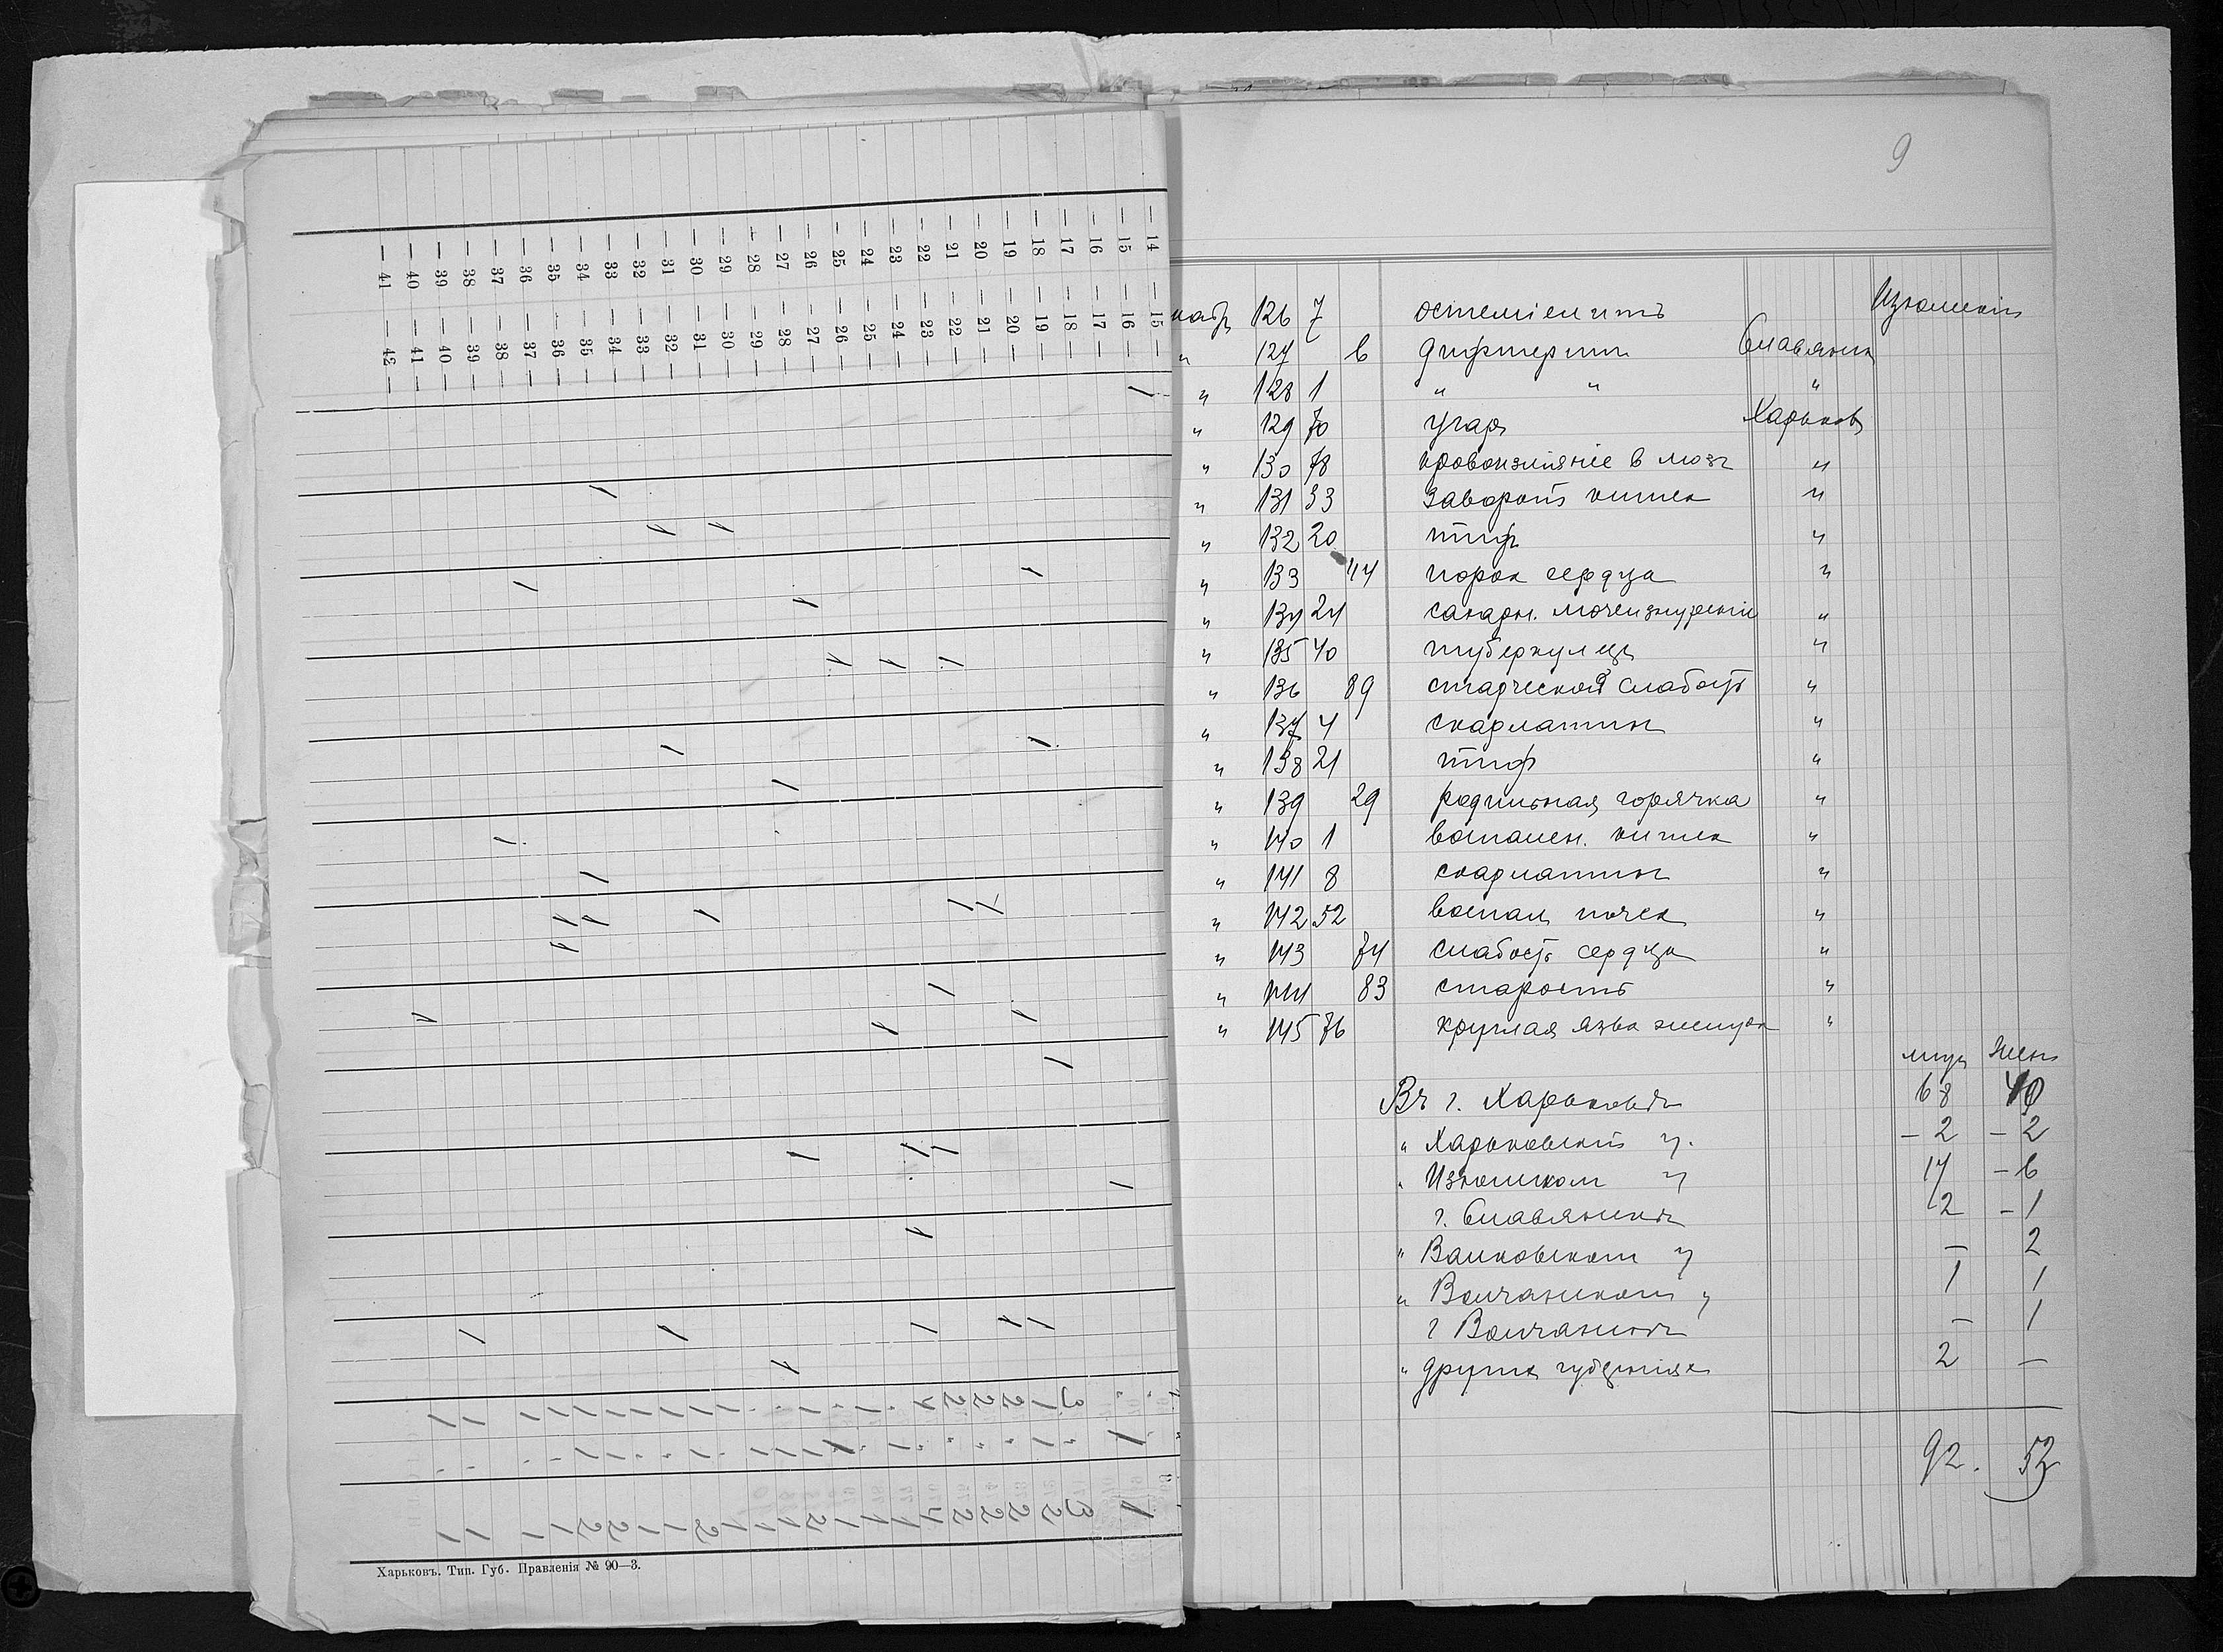 — 14 — 15 —
— 15 — 16 —
— 16 — 17 —
— 17 — 18 —
— 18 — 19 —
— 19 — 20 —
— 20 — 21 —
— 21 — 22 —
— 22 — 23 —
— 23 — 24 —
— 24 — 25 —
— 25 — 26 —
— 26 — 27 —
— 27 — 28 —
— 28 — 29 —
— 29 — 30 —
— 30 — 31 —
— 31 — 32 —
— 32 — 33 —
— 33 — 34 —
— 34 — 35 —
— 35 — 36 —
— 36 — 37 —
— 37 — 38 —
— 38 — 39 —
— 39 — 40 —
— 40 — 41 —
— 41 — 42 —
Харьковъ. Тип. Губ. Правленія № 90—3.
9
126 7 Изюмскій
" 127 6 дифтерит Славянск
" 128 1 " " "
" 129 70 угар Харьков
" 130 78 кровоизліяніе в мозг "
" 131 33 заворот кишек "
" 132 20 тиф "
" 133 44 порок сердца "
" 134 24 сахарн. мочеизнуреніе "
" 135 40 туберкулез "
" 136 89 старческая слабость "
" 137 4 скарлатина "
" 138 21 тиф "
" 139 29 родильная горячка "
" 140 1 воспален. кишек "
" 141 8 скарлатина "
" 142 52 воспал почек "
" 143 74 слабость сердца "
" 144 83 старость "
" 145 76 круглая язва желудка "
муж жен
Въ г. Харьковѣ 68 40
" Харьковский у. – 2 – 2
" Изюмском у 17 – 6
г. Славянскѣ 2 – 1
" Валковском у — 2
" Волчанском " 1 1
г Волчанскѣ — 1
" других губерніях 2 —
92. 53